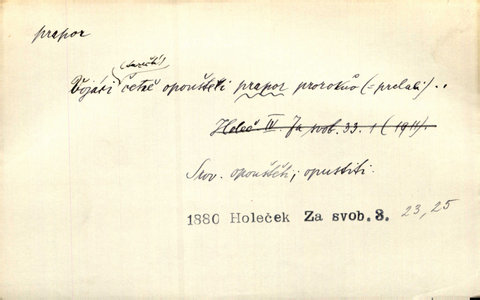 prapor
Vojáci četně opouštěli prapor proroků (= prelátů)..
Holeč. IV. Za svob. 33. 1 (1911).
Srov. opouštěti, opustiti.
1880 Holeček Za svob. 3. 23, 25